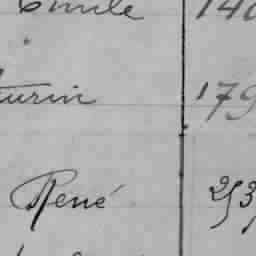 Emile 140
turin 179
René 253